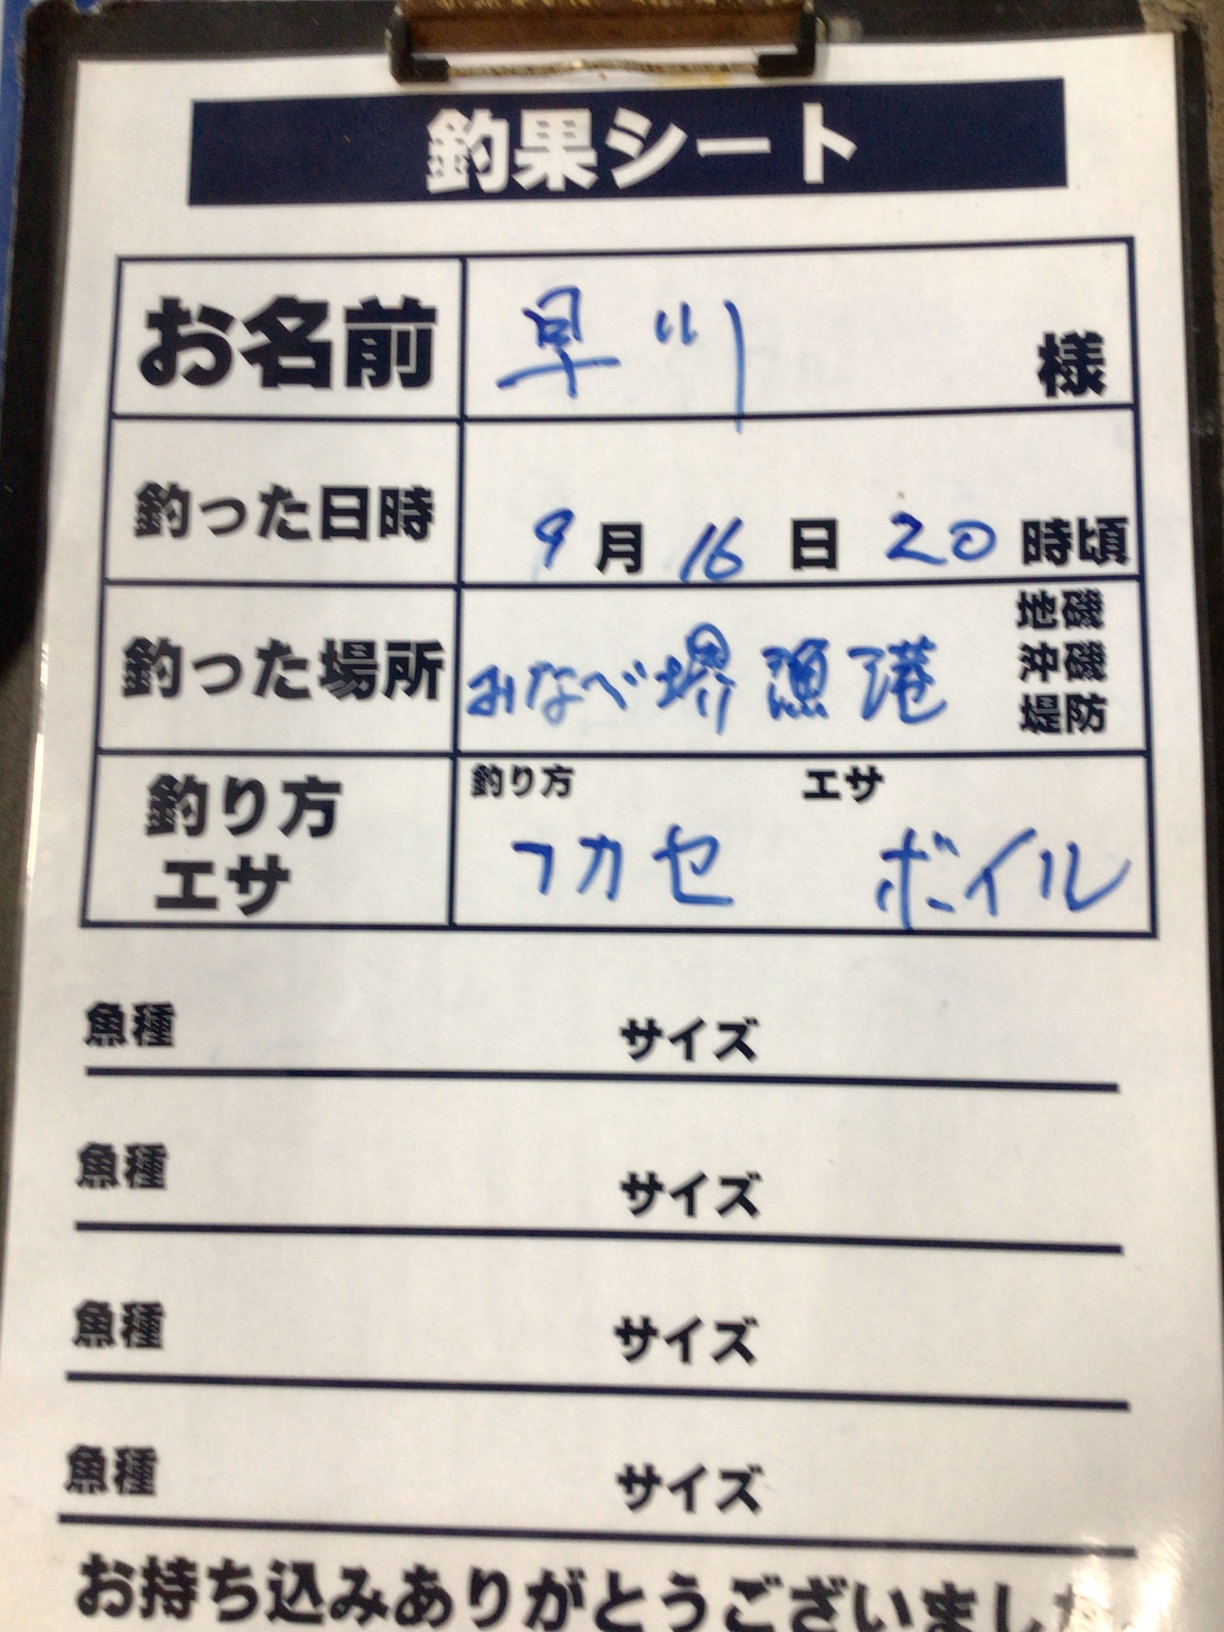 釣果シート
お名前 早川 様
釣った日時 9月16日20時頃
釣った場所 みなべ堺漁港 地磯
沖磯
堤防
釣り方 エサ
釣り方 フカセ ボイル
エサ
魚種 サイズ
魚種 サイズ
魚種 サイズ
魚種 サイズ
お持ち込みありがとうございました